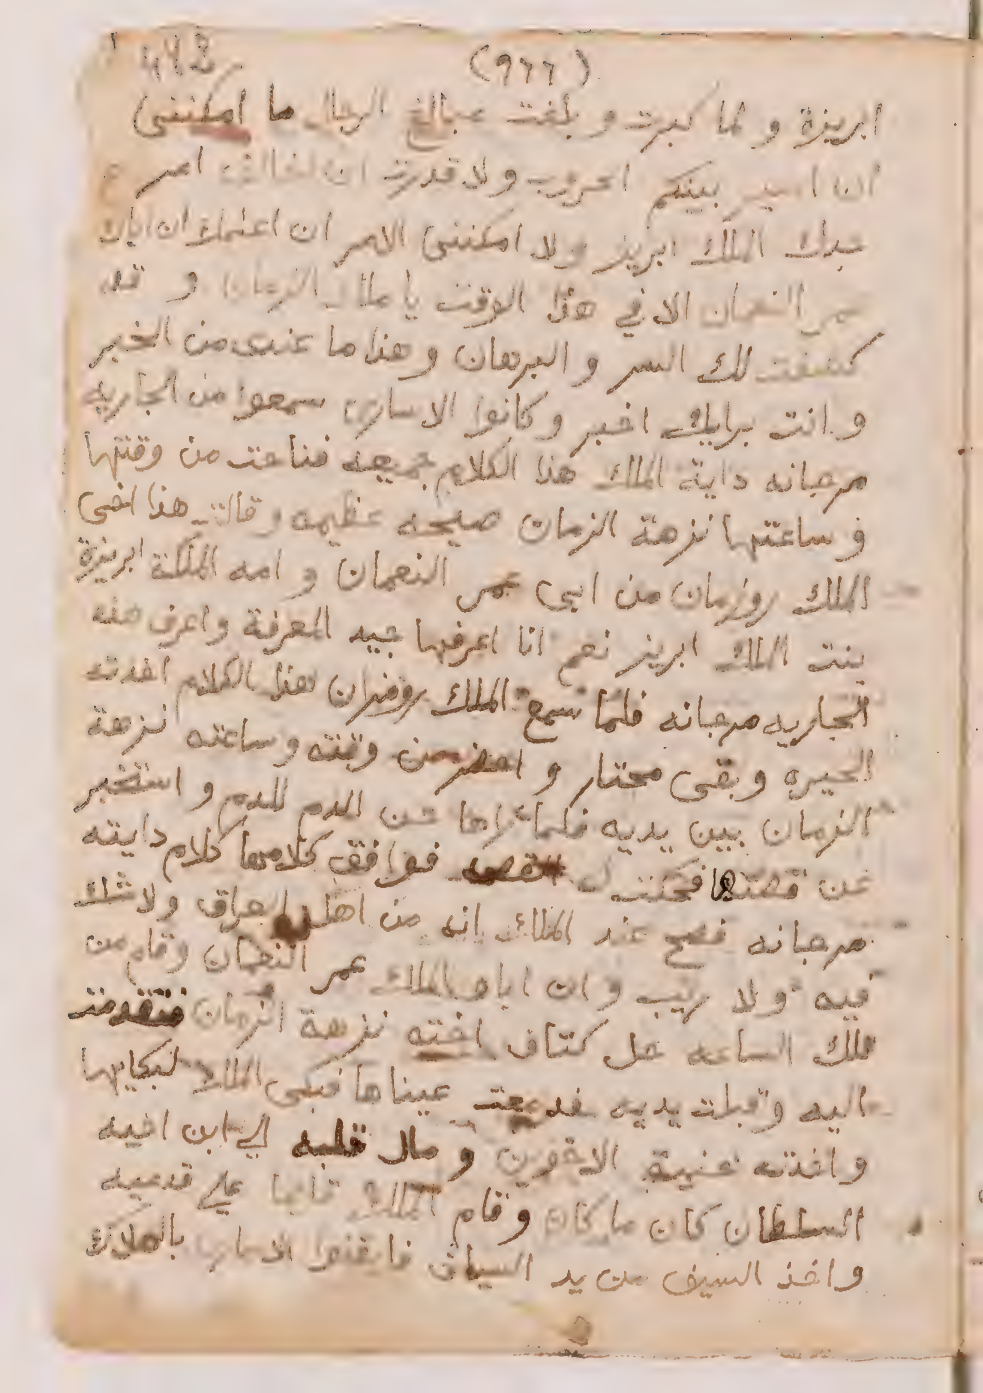 (٩٦٦) 482
ابريزة ولما كبرت و بلغت مبالغ الرجال ما امكننى
ان اسير بينكم الحروب ولا قدرت ان اخالف امر
جدك الملك ابريز ولا امكننى الامر ان اعلمك ان اباك
عمر النعمان الا في هذا الوقت يا ملك الزمان و قد
كشفت لك السر و البرهان وهذا ما عندى من الخبر
و انت برايك اخبر وكانوا الاسارى سمعوا من الجاريه
مرجانه داية الملك هذا الكلام جميعه فناحت من وقتها
و ساعتها نزهة الزمان صيحه عظيمه وقالت هذا اخى
الملك رومزان من ابى عمر النعمان و امه الملكة ابريزة
بنت الملك ابريز نعم انا اعرفها جيد المعرفة واعرف هذه
الجاريه مرجانه فلما سمع الملك رومزان هذا الكلام اخذته
الحيره وبقى محتار و احضر من وقته وساعته نزهة
الزمان بين يديه فلما راها حن الدم للدم و استخبر
عن قصتها فحكت ل القصه فوافق كلامها كلام دايته
مرجانه فصح عند الملك انه من اهل العراق ولا شك
فيه ولا ريب و ان اباه الملك عمر النعمان وقام من
تلك الساعه حل كتاف اخته نزهة الزمان فتقدمت
اليه وقبلت يديه فدمعت عيناها فبكى الملك لبكايها
واخذته حنية الاخوين و مال قلبه الي ابن اخيه
السلطان كان ما كان وقام الملك قايما على قدميه
واخذ السيف من يد السياف فايقنوا الاسارى بالهلاك